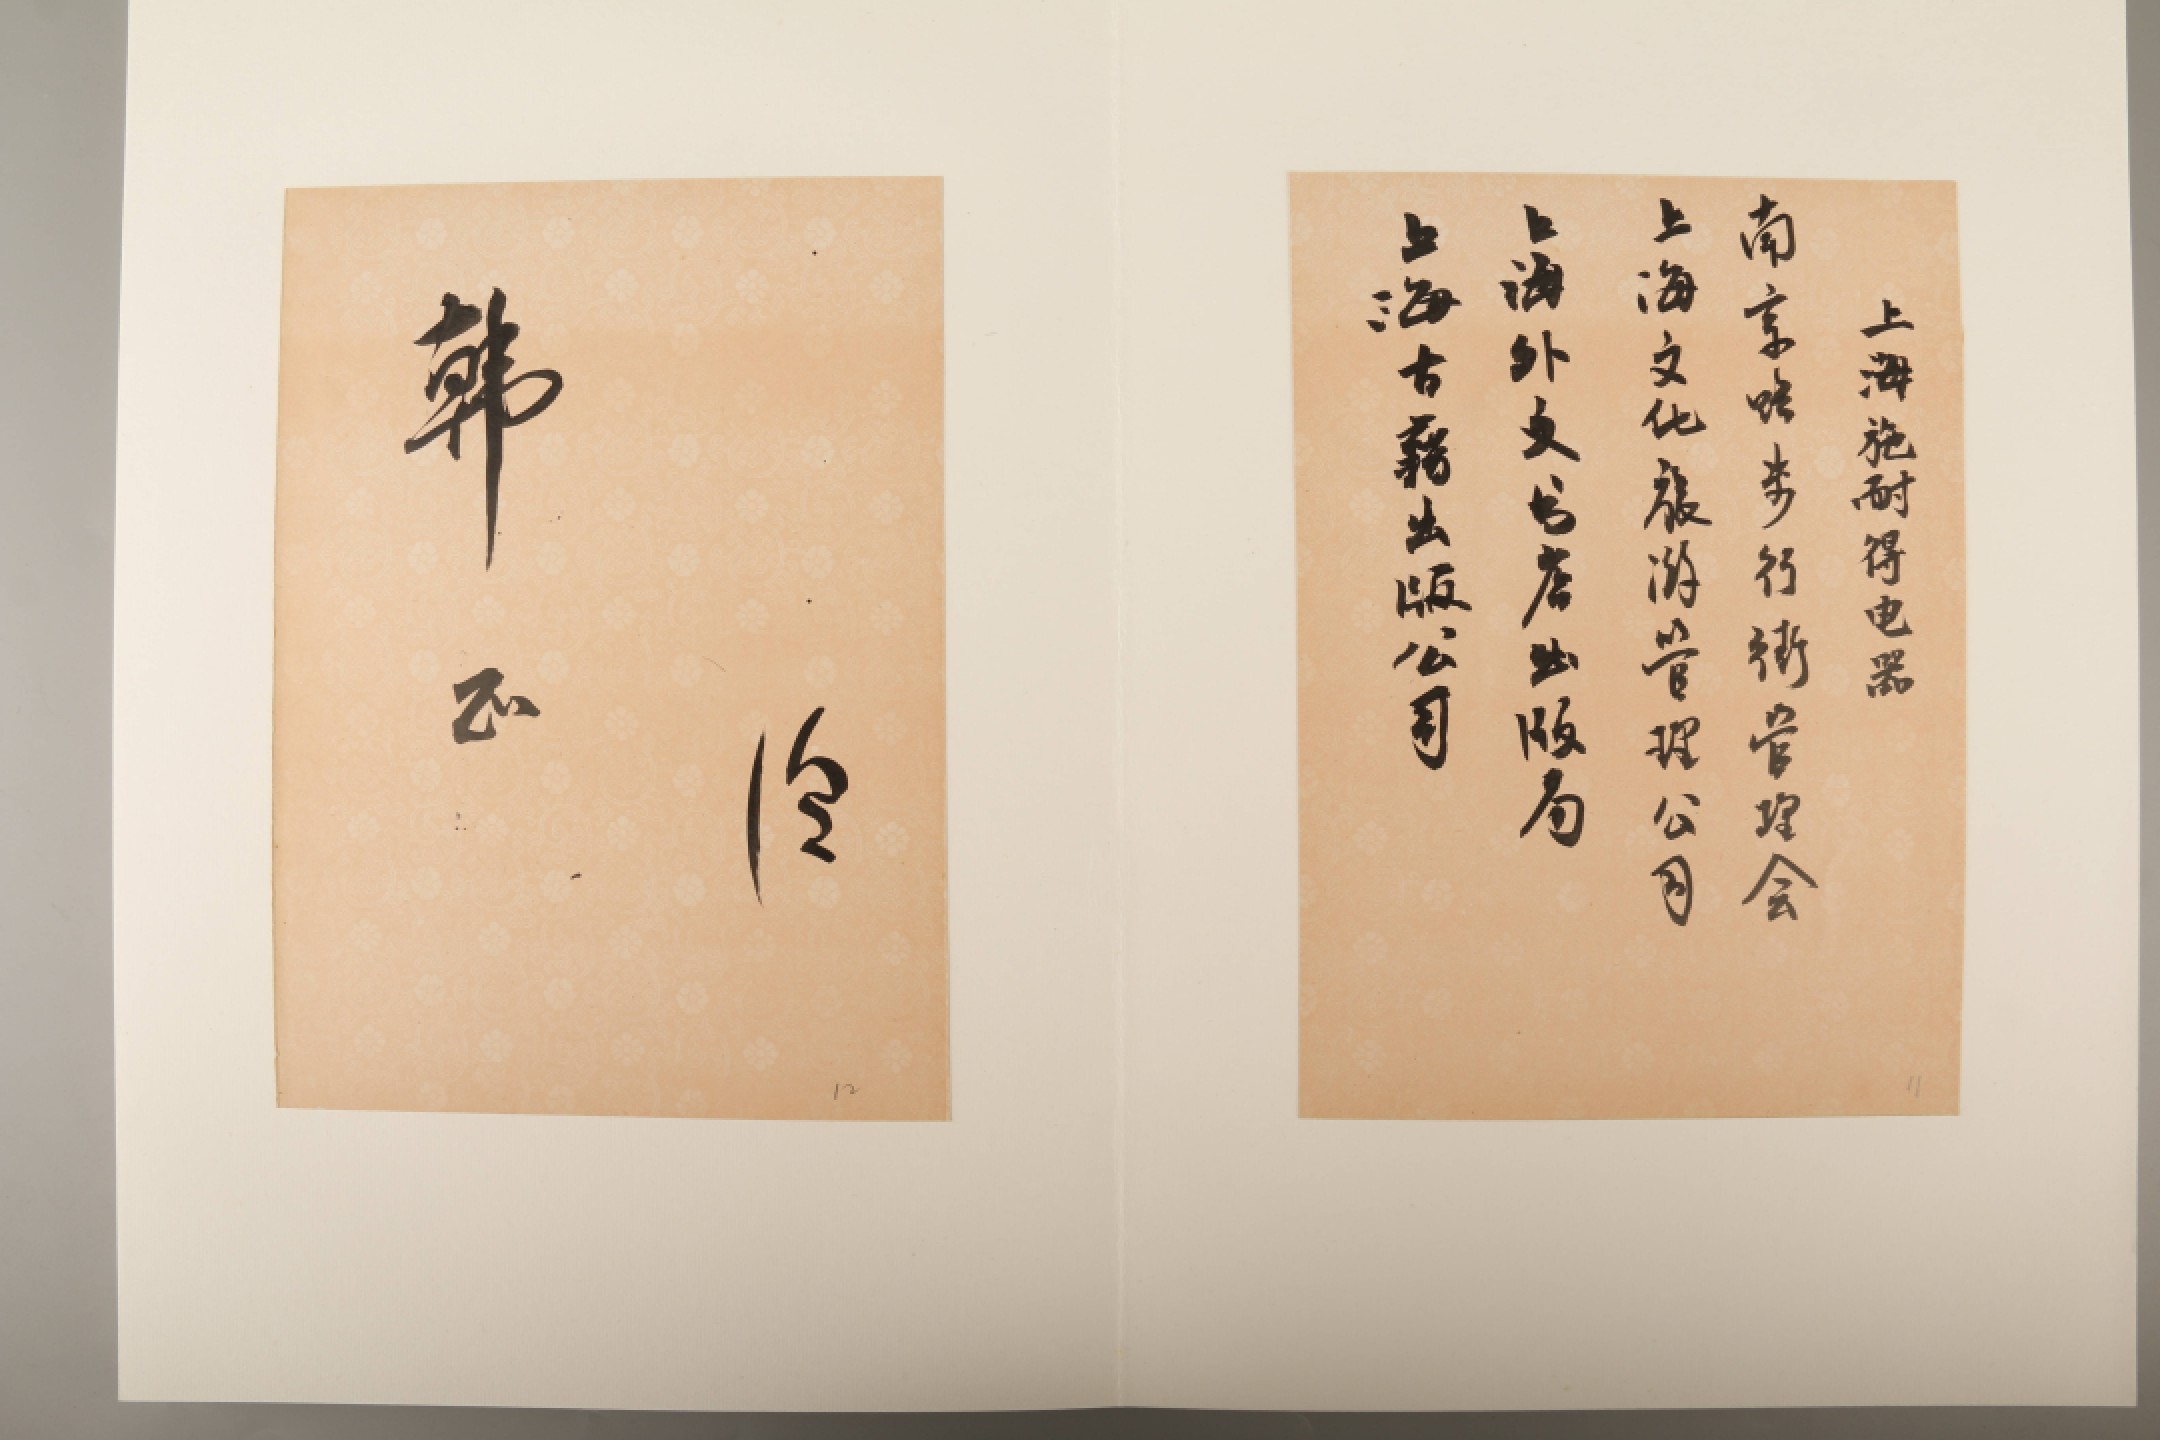 上海施耐得电器
南京路步行街管理会
上海文化旅游管理公司
上海外文书店出版局
上海古籍出版公司
11
韩正
12